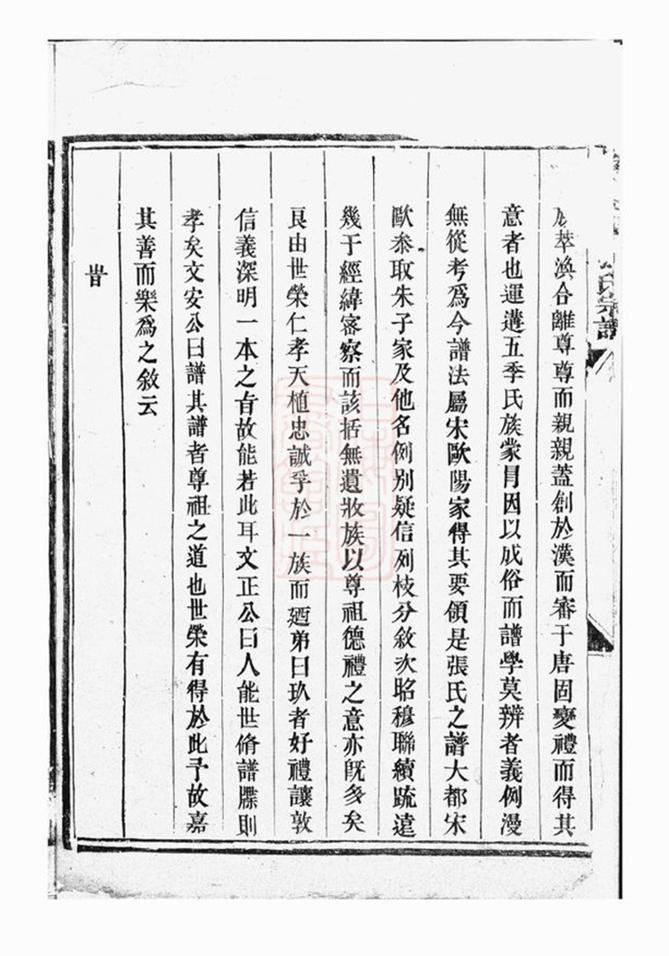 氏宗譜
萃渙合離尊尊而親親蓋創於漢而審于唐固變禮而得其
意者也運遘五季氏族蒙冐因以成俗而譜學莫辨者義例漫
無從考爲今譜法屬宋歐陽家得其要領是張氏之譜大都宋
歐叅取朱子家及他名例别疑信列枝分敘次昭穆聯續䟽遠
幾于經緯宻察而該括無遺妝族以尊祖德禮之意亦旣多矣
良由世榮仁孝天植忠誠孚於一族而廼弟曰玖者好禮讓敦
信義深明一本之㫖故能若此耳文正公曰人能世脩譜牒則
孝矣文安公曰譜其譜者尊祖之道也世榮有得於此予故嘉
其善而樂爲之敘云
旹